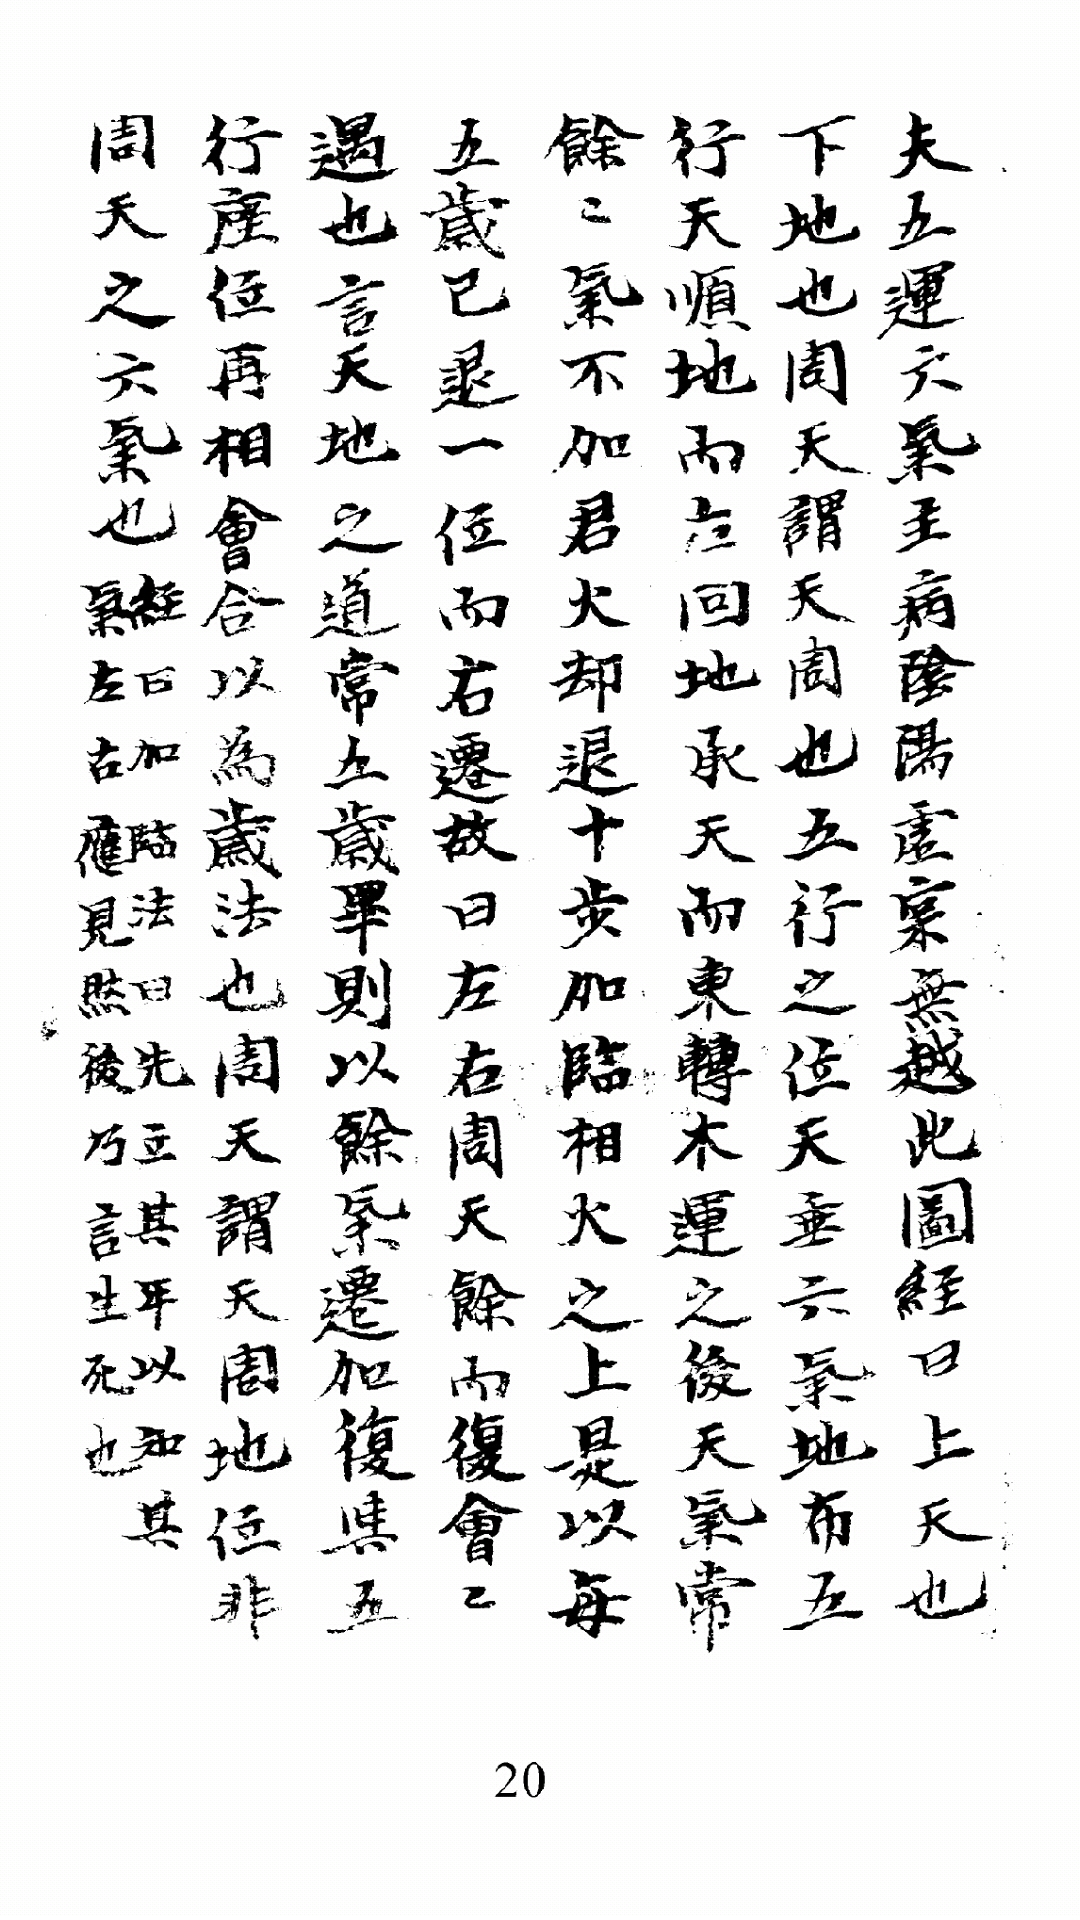 夫五運六氣主病陰陽虛實無越此圖經曰上天也
下地也周天謂天周也五行之位天垂六氣地布五
行天順地而左回地承天而東轉木運之後天氣常
餘〻氣不加君火却退十步加臨相火之上是以每
五歲已退一位而右遷故曰左右周天餘而復會〻
遇也言天地之道常五歲畢則以餘氣遷加復與五
行座位再相會合以為歲法也周天謂天周地位非
周天之六氣也
經曰加臨法曰先立其年以知其
氣左右應見然後乃言生死也
20